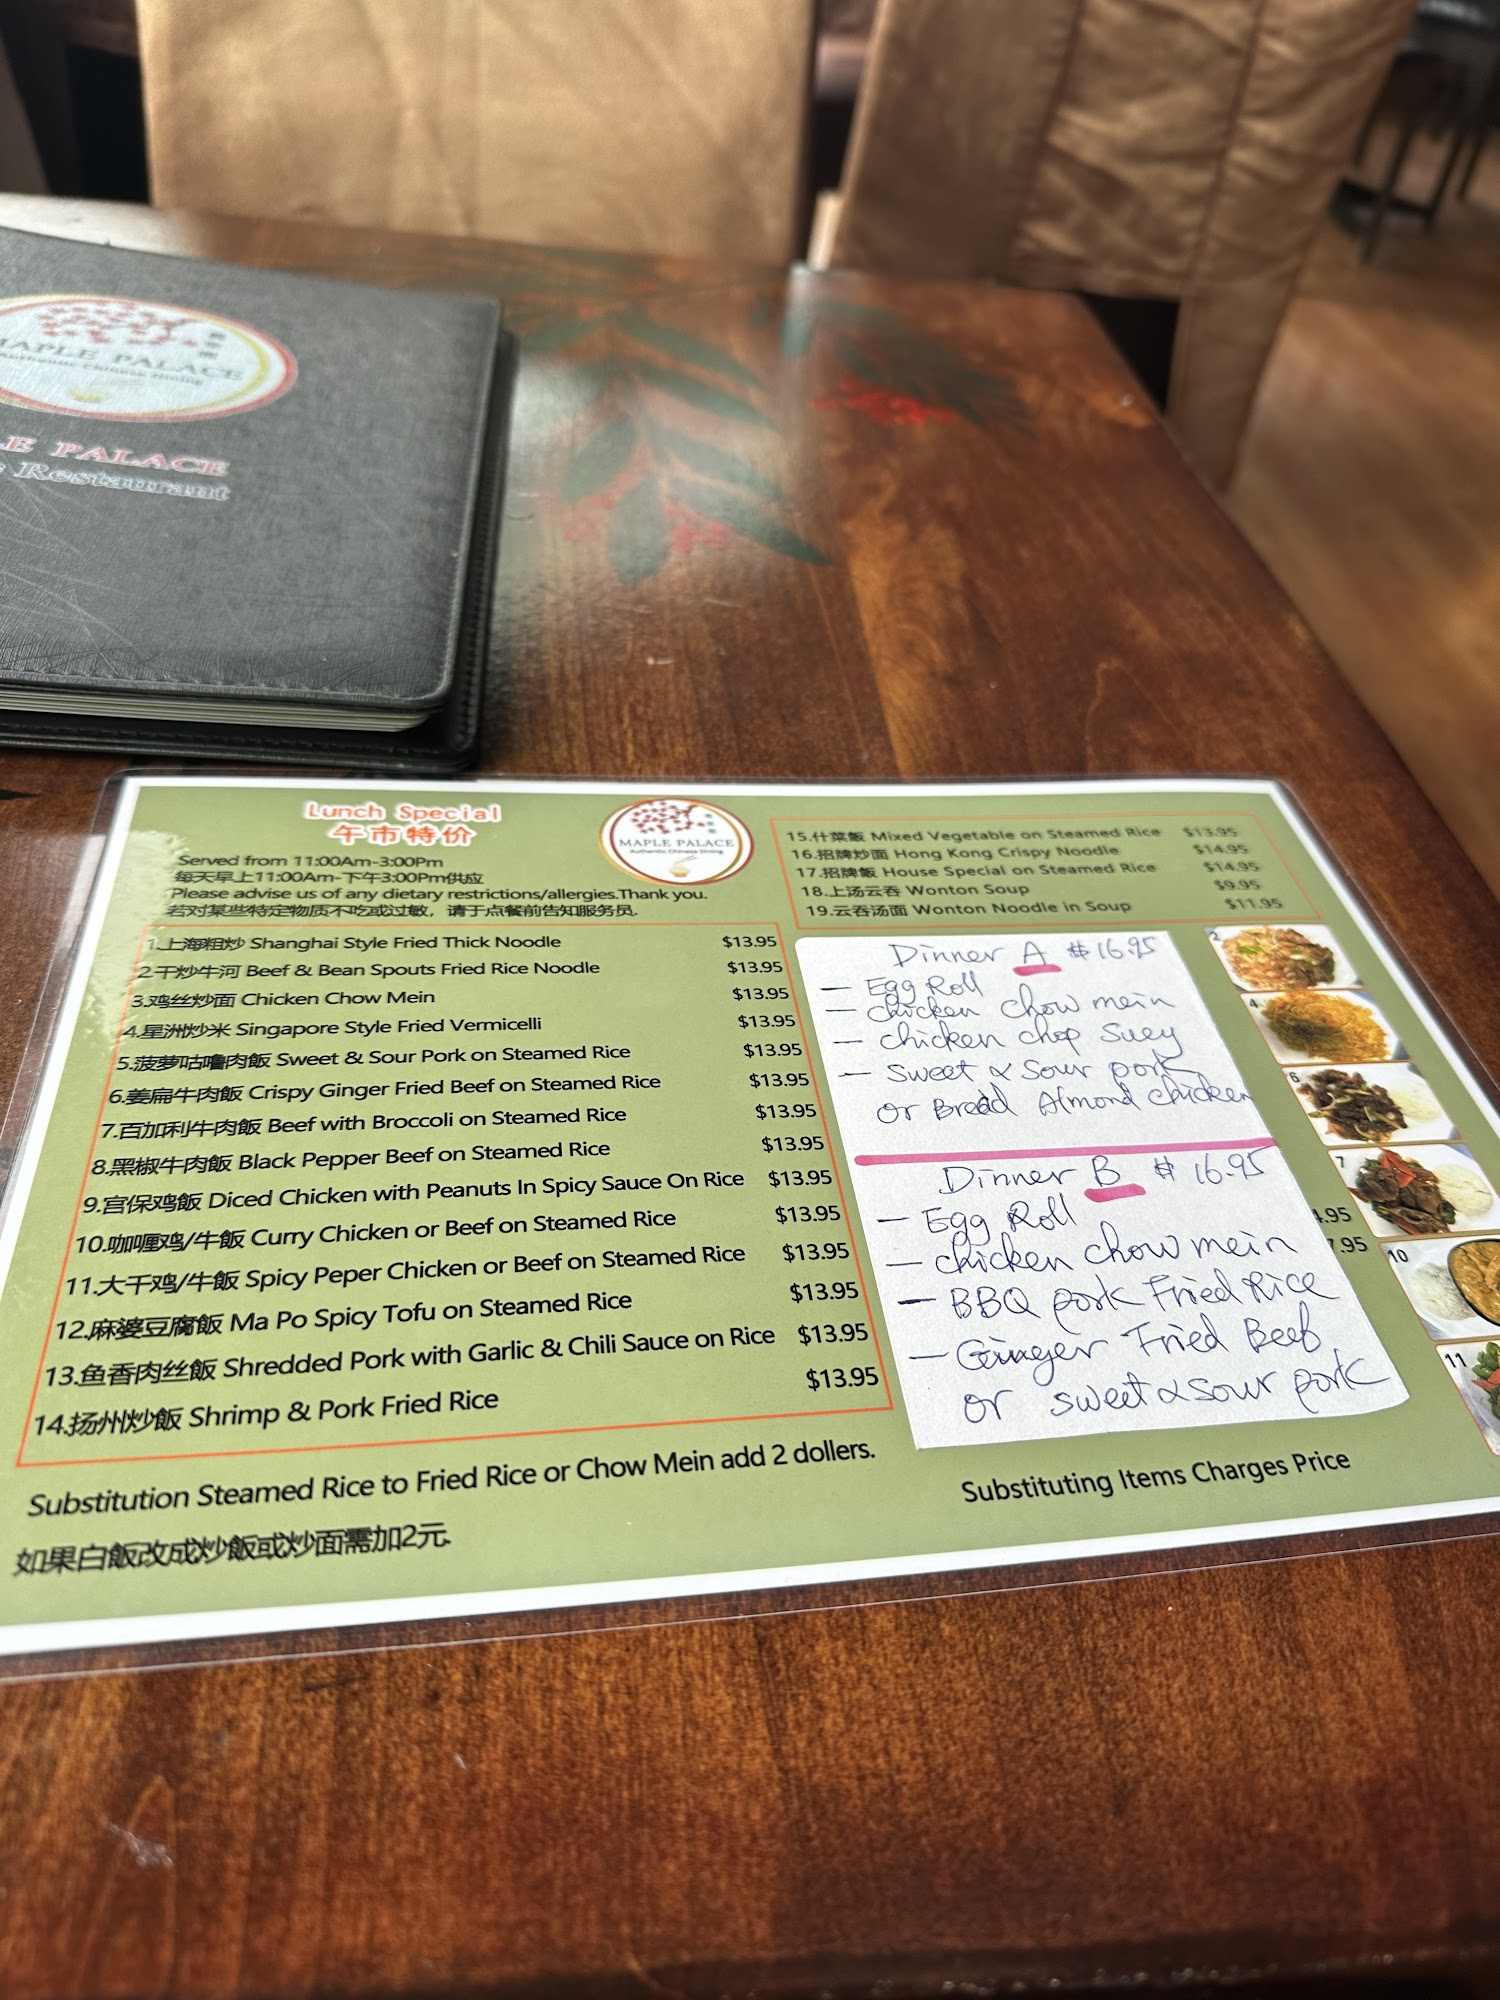 MAPLE PALACE
Authentic Chinese Dining
PALACE
Restaurant
Lunch Special
午市特价
Served from 11:00Am-3:00Pm
每天早上11:00Am-下午3:00Pm供应
Please advise us of any dietary restrictions/allergies.Thank you.
若对某些特定物质不吃或过敏，请于点餐前告知服务员.
MAPLE PALACE
Authentic Chinese Dining
1.上海粗炒 Shanghai Style Fried Thick Noodle $13.95
2.干炒牛河 Beef & Bean Spouts Fried Rice Noodle $13.95
3.鸡丝炒面 Chicken Chow Mein $13.95
4.星洲炒米 Singapore Style Fried Vermicelli $13.95
5.菠萝咕噜肉飯 Sweet & Sour Pork on Steamed Rice $13.95
6.姜扁牛肉飯 Crispy Ginger Fried Beef on Steamed Rice $13.95
7.百加利牛肉飯 Beef with Broccoli on Steamed Rice $13.95
8.黑椒牛肉飯 Black Pepper Beef on Steamed Rice $13.95
9.宫保鸡飯 Diced Chicken with Peanuts In Spicy Sauce On Rice $13.95
10.咖喱鸡/牛飯 Curry Chicken or Beef on Steamed Rice $13.95
11.大干鸡/牛飯 Spicy Peper Chicken or Beef on Steamed Rice $13.95
12.麻婆豆腐飯 Ma Po Spicy Tofu on Steamed Rice $13.95
13.鱼香肉丝飯 Shredded Pork with Garlic & Chili Sauce on Rice $13.95
14.扬州炒飯 Shrimp & Pork Fried Rice $13.95
Substitution Steamed Rice to Fried Rice or Chow Mein add 2 dollers.
如果白飯改成炒飯或炒面需加2元.
15.什菜飯 Mixed Vegetable on Steamed Rice $13.95
16.招牌炒面 Hong Kong Crispy Noodle $14.95
17.招牌飯 House Special on Steamed Rice $14.95
18.上汤云吞 Wonton Soup $9.95
19.云吞汤面 Wonton Noodle in Soup $11.95
Dinner A $16.95
- Egg Roll
- chicken chow mein
- chicken chop suey
- sweet & sour pork
or Bread Almond chicken
Dinner B $16.95
- Egg Roll
- chicken chow mein
- BBQ pork Fried Rice
- Ginger Fried Beef
or sweet & sour pork
4.95
7.95
Substituting Items Charges Price
2
4
6
7
10
11